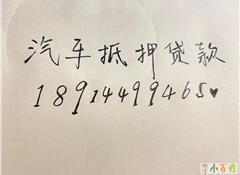 汽车抵押贷款
18914499465♥
小百姓